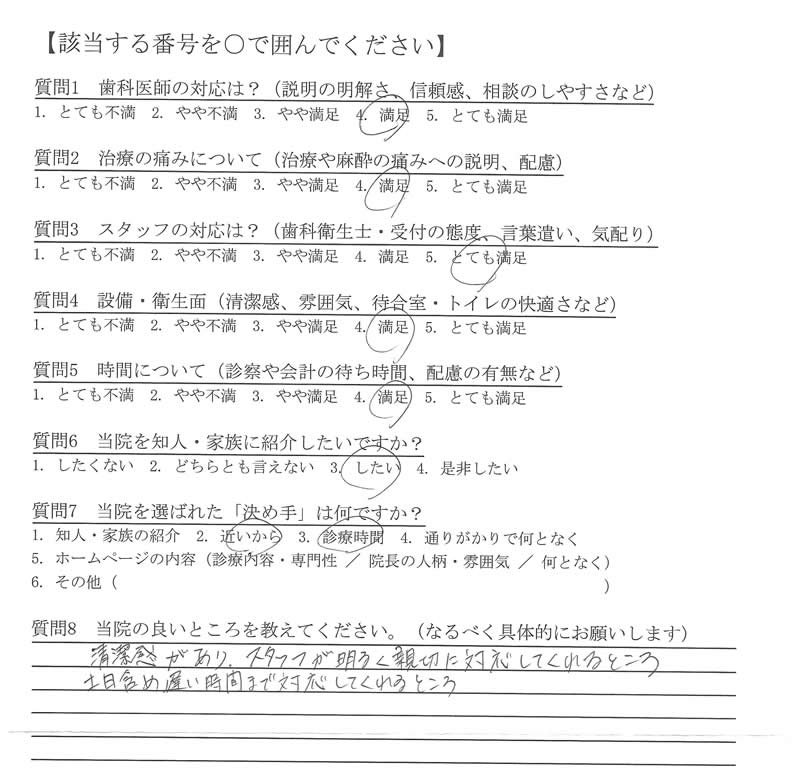 【該当する番号を〇で囲んでください】
質問1 歯科医師の対応は？（説明の明解さ、信頼感、相談のしやすさなど）
1. とても不満 2. やや不満 3. やや満足 4. 満足 5. とても満足
質問2 治療の痛みについて（治療や麻酔の痛みへの説明、配慮）
1. とても不満 2. やや不満 3. やや満足 4. 満足 5. とても満足
質問3 スタッフの対応は？（歯科衛生士・受付の態度、言葉遣い、気配り）
1. とても不満 2. やや不満 3. やや満足 4. 満足 5. とても満足
質問4 設備・衛生面（清潔感、雰囲気、待合室・トイレの快適さなど）
1. とても不満 2. やや不満 3. やや満足 4. 満足 5. とても満足
質問5 時間について（診察や会計の待ち時間、配慮の有無など）
1. とても不満 2. やや不満 3. やや満足 4. 満足 5. とても満足
質問6 当院を知人・家族に紹介したいですか？
1. したくない 2. どちらとも言えない 3. したい 4. 是非したい
質問7 当院を選ばれた「決め手」は何ですか？
1. 知人・家族の紹介 2. 近いから 3. 診療時間 4. 通りがかりで何となく
5. ホームページの内容（診療内容・専門性 ／ 院長の人柄・雰囲気 ／ 何となく）
6. その他（ ）
質問8 当院の良いところを教えてください。（なるべく具体的にお願いします）
清潔感があり、スタッフが明るく親切に対応してくれるところ
土日含め遅い時間まで対応してくれるところ